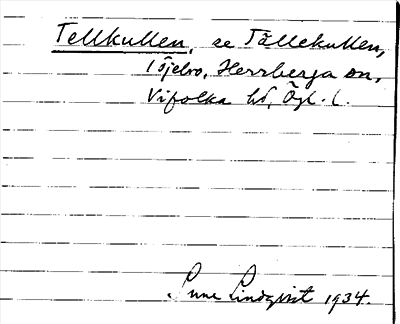 Tellkullen, se Tällekullen,
Isjelvo, Herrberga sn,
Vifolka hd, Ögl. l.
Sune Lindqvist 1934.